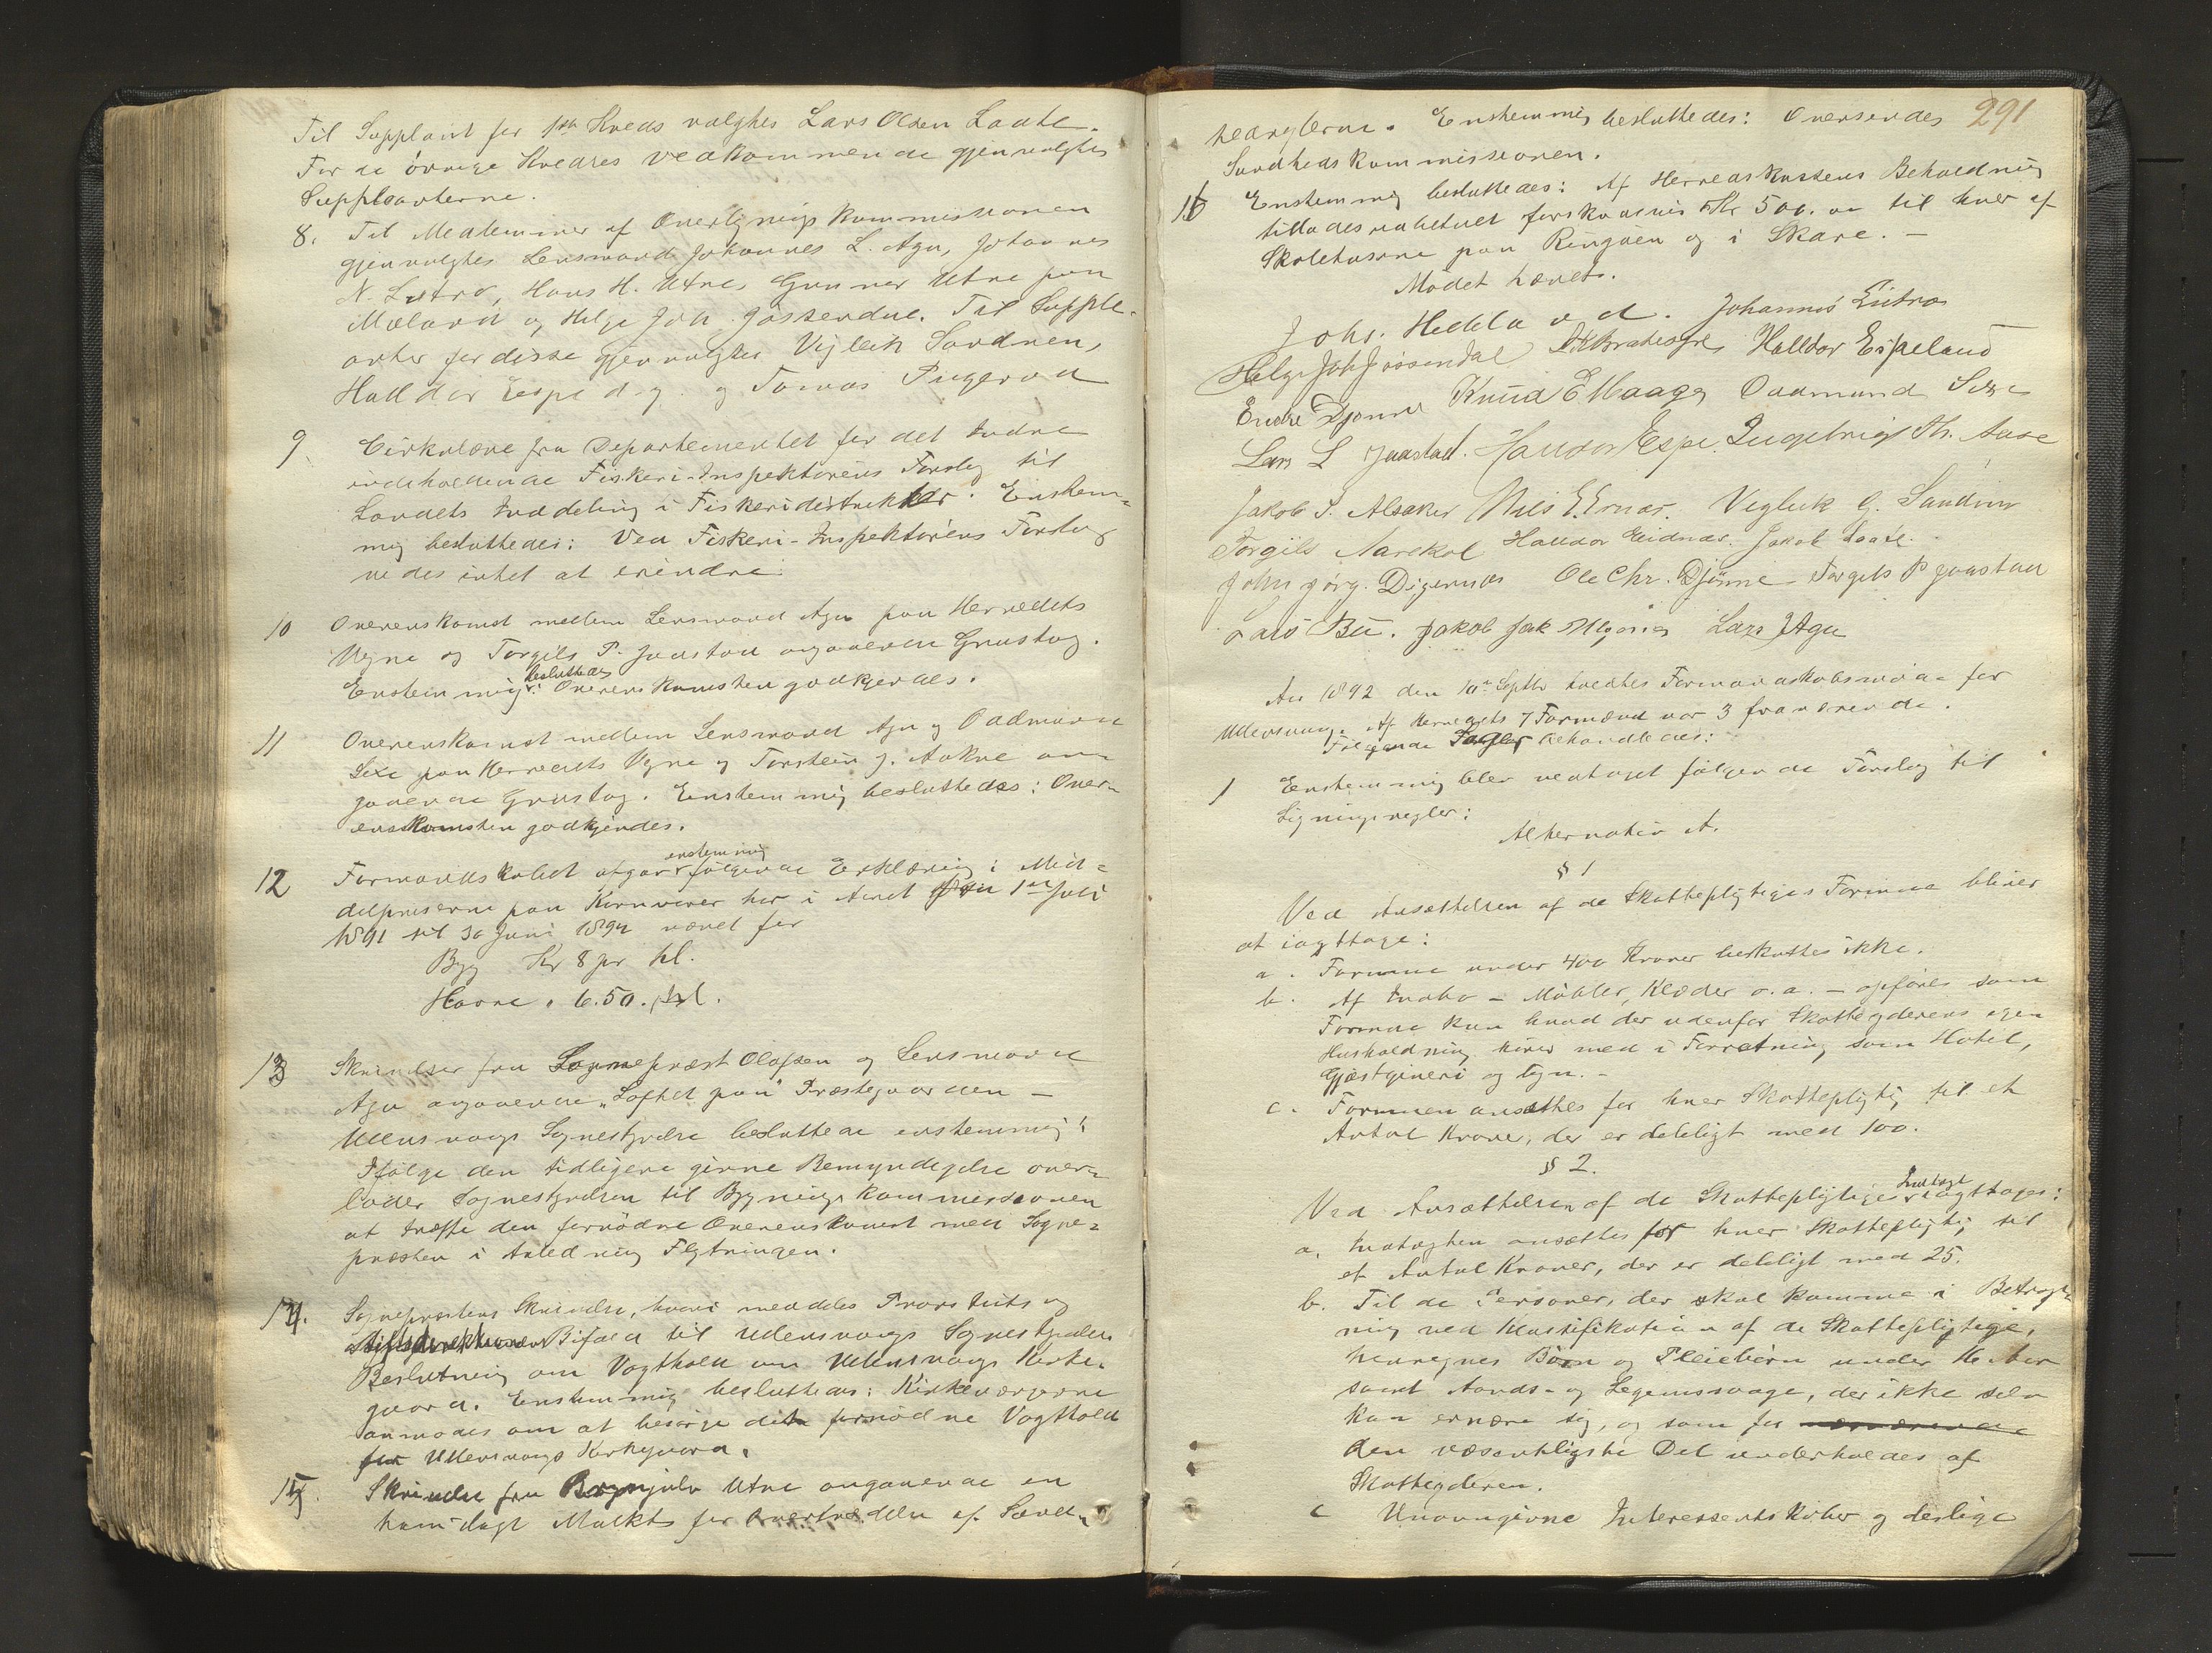 Til Suppleant for 1ste Kreds valgtes Lars Olsen Laate.
For de øvrige Kredses Vedkommende gjenvalgtes
Suppleanterne.
8. Til Medlemmer af Overligningskommissionen
gjenvalgtes Lensmand Johannes L. Aga, Johannes
N. Lutro, Hans H. Utne, Gunnar Utne paa
Maland og Helge Joh. Jøssendal. Til Supple-
anter for disse gjenvalgtes Vigleik Sandven,
Halldor Espe d. y. og Tomas
9. Cirkulære fra Departementet for det Indre
indeholdende Fiskeri-Inspektørens Forslag til
Landets Inddeling i Fiskeridistrikter. Enstem-
mig besluttedes: Ved Fiskeri-Inspektørens Forslag
vides intet at erindre.
10 Overenskomst mellem Lensmand Aga paa Herredets
Vegne og Torgils P. Jaastad angaaende Grustag.
Enstemmig besluttedes: Overenskomsten godkjendes.
11 Overenskomst mellem Lensmand Aga og Oadmund
Sexe paa Herredets Vegne og Torstein J. Aakre an-
gaaende Grustag. Enstemmig besluttedes: Over-
enskomsten godkjendes.
12 Formandskabet afgav enstemmig følgende Erklæring: Mid-
delpriserne paa Kornvarer har i Aaret fra 1ste Juli
1891 til 30 Juni 1892 været for
Byg Kr 8 pr hl.
Havre " 6.50. pr hl.
13 Skrivelser fra Sogneprest Olafsen og Lensmand
Aga angaaende "Loftet paa" Præstegaarden -
Ullensvangs Sognestyrelse besluttede enstemmig:
Ifølge den tidligere givne Bemyndigelse over-
lader Sognestyrelsen til Bygningskommissionen
at træffe den fornødne Overenskomst med Sogne-
præsten i Anledning Flytningen.
14. Sognepræstens Skrivelse, hvori meddeles Provstiets og
Stiftsdirektionens Bifald til Ullensvangs Sognestyrelses
Beslutning om Vagthold om Ullensvangs Kirke-
gaard. Enstemmig besluttedes: Kirkeværgerne
anmodes om at besørge det fornødne Vagthold
for Ullensvangs Kirkegaard.
15. Skrivelse fra Brynjulv Utne angaaende en
ham ilagt Mulkt for Overtrædelse af Sund-
291
hedsreglerne. Enstemmig besluttedes: Oversendes
Sundhedskommissionen.
16 Enstemmig besluttedes: Af Herredskassens Beholdning
tillades udbetalt forskudsvis Kr 500.00 til hver af
Skolehusene paa Ringøen og i Skare. -
Mødet hævet.
Johs. Hedla o d. Johannes Lutro
Helge Joh Jøssendal Halldor Espeland
Endre Djønne Knud E Maage Oadmund Sexe
Lars L Jaastad. Halldor Espe. Ingebrigt Th. Aase
Jakob J. Alsaker Nils E. Ernæs. Vigleik O. Sandven
Torgils Aarekol Halldor Eidnæs. Jakob Laate.
John Jørg. Digernæs Ole Chr. Djønne Torgils P Jaastad
Lars Bu. Jakob Jak Lars J Aga
Aar 1892 den 10de Septbr holdtes Formandskabsmøde for
Ullensvang. Af Herredets 7 Formænd var 3 fraværende.
Følgende Sager behandledes:
1 Enstemmig blev vedtaget følgende Forslag til
Ligningsregler:
Alternativ A.
§ 1
Ved Ansættelsen af de Skattepligtiges Formue bliver
at iagttage:
a. Formue under 400 Kroner beskattes ikke.
b. Af Indbo - Møbler, Klæder o. a. - opføres som
Formue kun hvad der udenfor Skatteyderens egen
Husholdning hører med i Forretning som Hotel,
Gjæstgiveri og lign. -
c. Formuen ansættes for hver Skattepligtig til et
Antal Kroner, der er deleligt med 100.
§ 2.
Ved Ansættelsen af de Skattepligtiges Indtægt iagttages:
a. Indtægten ansættes for hver Skattepligtig til
et Antal Kroner, der er deleligt med 25.
b. Til de Personer, der skal komme i Betragt-
ning ved Klassifikation af de Skattepligtige,
henregnes Børn og Pleiebørn under 16 Aar
samt Aands- og Legemssvage, der ikke selv
kan ernære sig, og som for
den væsentligste Del underholdes af
Skatteyderen.
c Unavngivne Interessentskaber og deslige